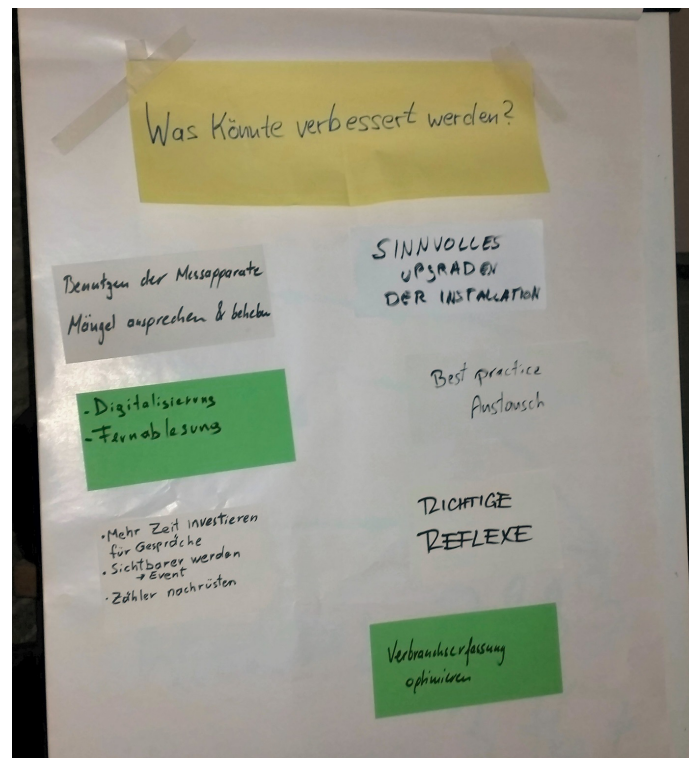 Was Könnte verbessert werden?
Benutzen der Messapparate
Mängel ansprechen & beheben
- Digitalisierung
- Fernablesung
• Mehr Zeit investieren
für Gespräche
• Sichtbarer werden
→ Event
• Zähler nachrüsten
SINNVOLLES
UPGRADEN
DER INSTALLATION
Best practice
Austausch
RICHTIGE
REFLEXE
Verbrauchserfassung
optimieren